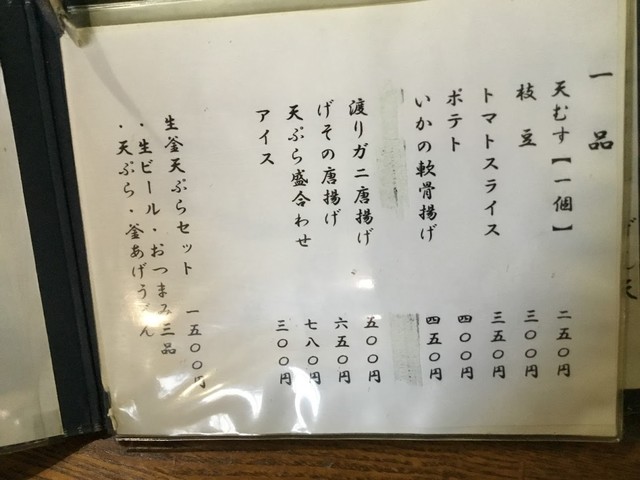 一品
天むす【一個】 二五〇円
枝豆 三〇〇円
トマトスライス 三五〇円
ポテト 四〇〇円
いかの軟骨揚げ 四五〇円
渡りガニ唐揚げ 五〇〇円
げその唐揚げ 六五〇円
天ぷら盛合わせ 七八〇円
アイス 三〇〇円
生釜天ぷらセット 一五〇〇円
・生ビール・おつまみ三品
・天ぷら・釜あげうどん